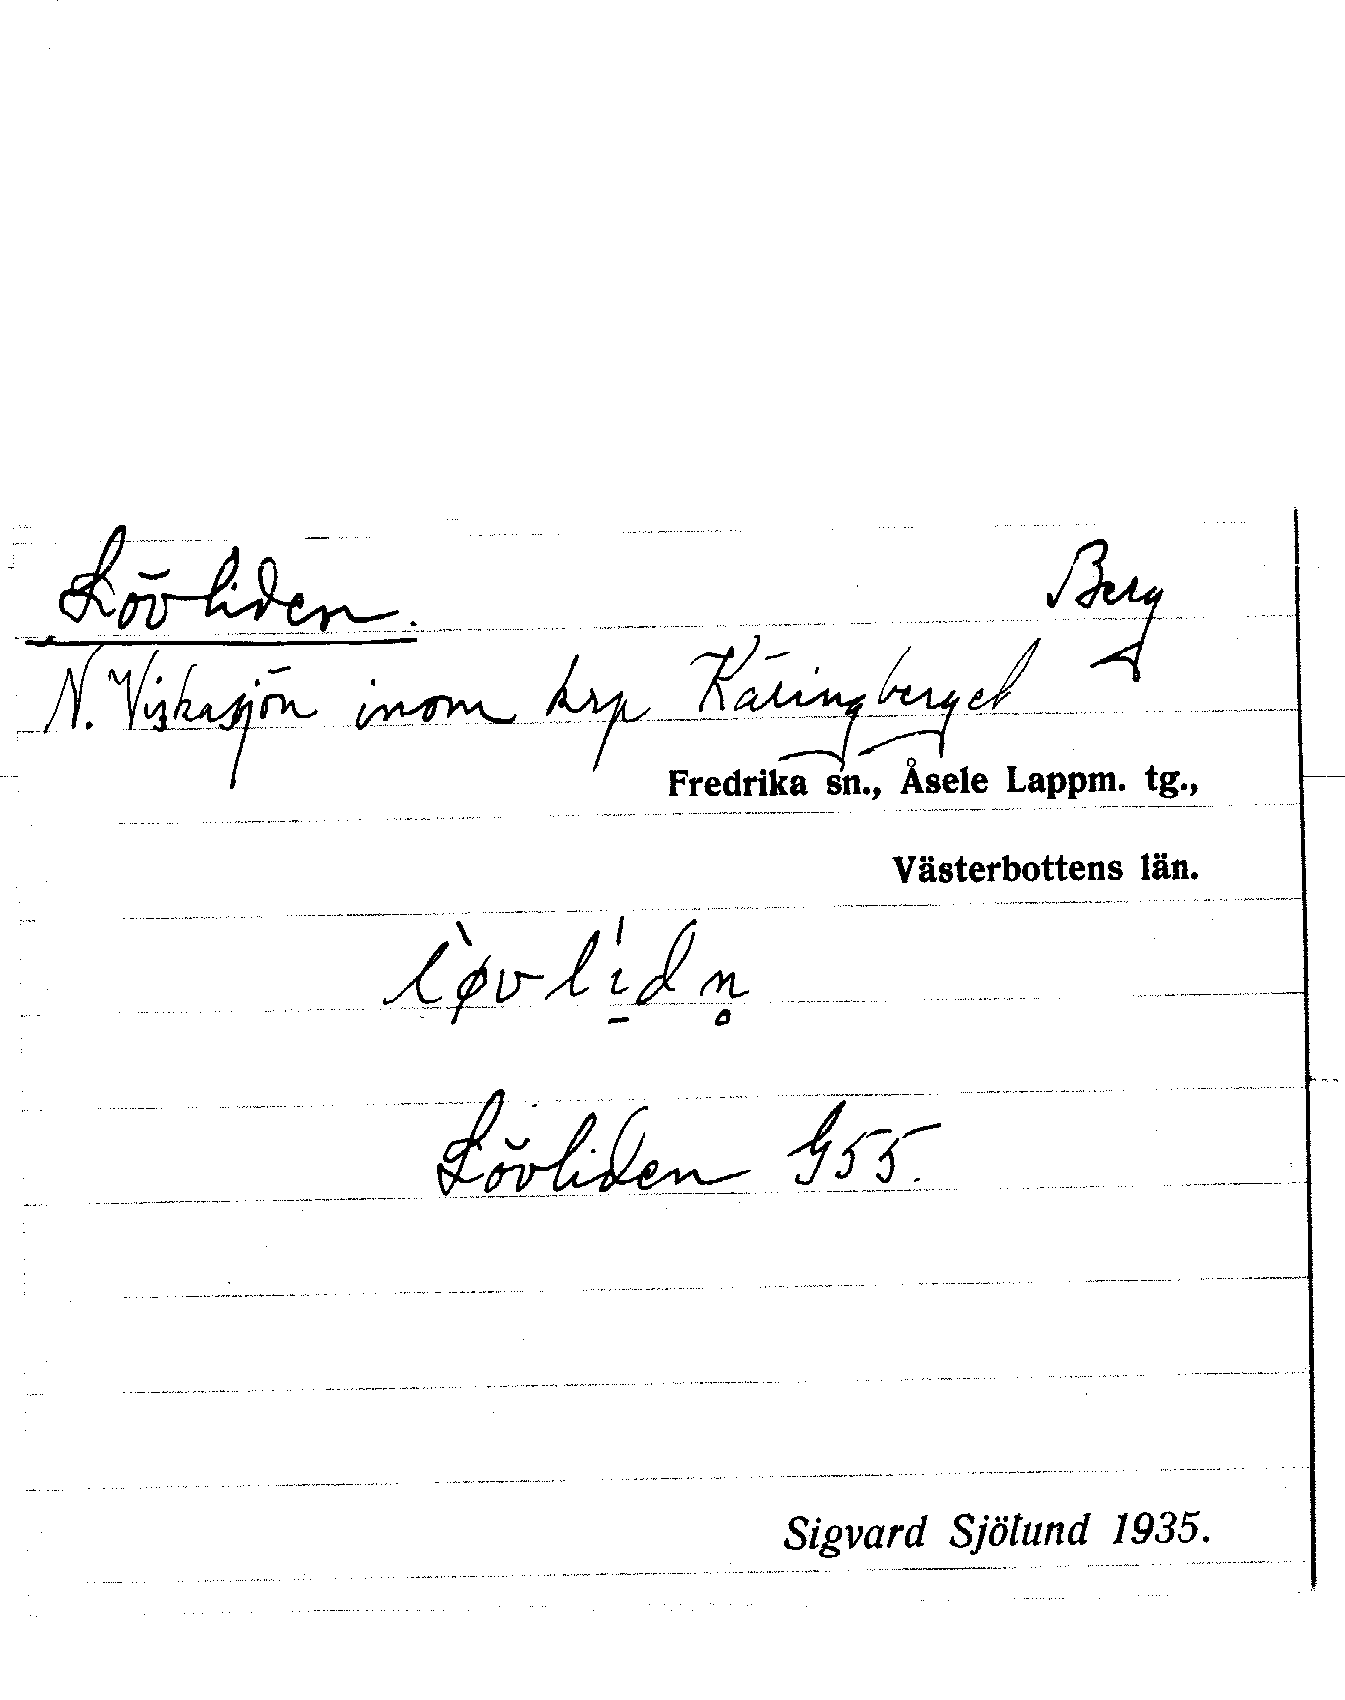 Lövliden. Berg
N. Viskasjön inom krp Käringberget
Fredrika sn., Åsele Lappm. tg.,
Västerbottens län.
lø̀vli̠̍dn̥
Lövliden G55.
Sigvard Sjölund 1935.